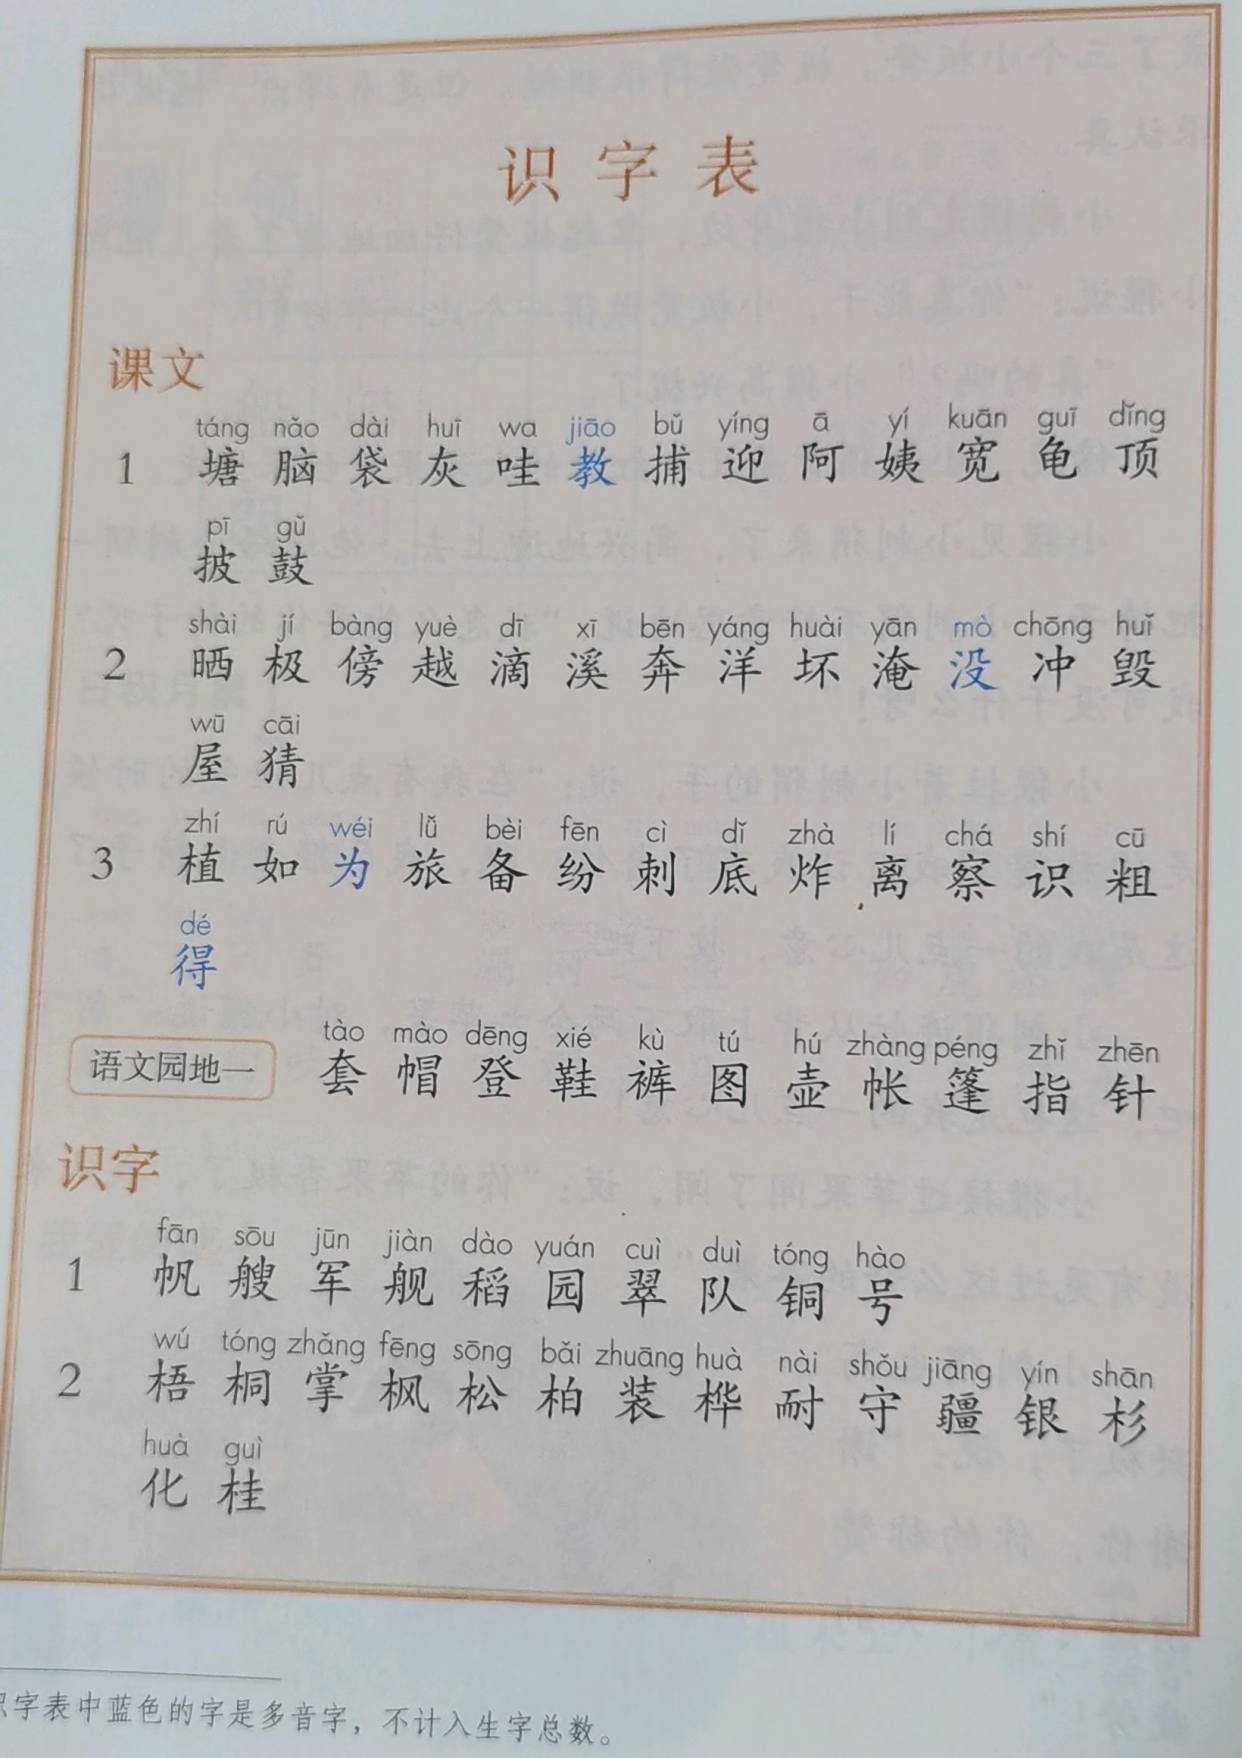 识字表
课文
táng nǎo dài huī wa jiāo bǔ yíng ā yí kuān guī dǐng
1 塘 脑 袋 灰 哇 教 捕 迎 阿 姨 宽 龟 顶
pī gǔ
披 鼓
shài jí bàng yuè dī xī bēn yáng huài yān mò chōng huǐ
2 晒 极 傍 越 滴 溪 奔 洋 坏 淹 没 冲 毁
wū cāi
屋 猜
zhí rú wéi lǚ bèi fēn cì dǐ zhà lí chá shí cū
3 植 如 为 旅 备 纷 刺 底 炸 离 察 识 粗
dé
得
tào mào dēng xié kù tú hú zhàng péng zhǐ zhēn
语文园地一 套 帽 登 鞋 裤 图 壶 帐 篷 指 针
识字
fān sōu jūn jiàn dào yuán cuì duì tóng hào
1 帆 艘 军 舰 稻 园 翠 队 铜 号
wú tóng zhǎng fēng sōng bǎi zhuāng huà nài shǒu jiāng yín shān
2 梧 桐 掌 枫 松 柏 装 桦 耐 守 疆 银 杉
huà guì
化 桂
字表中蓝色的字是多音字，不计入生字总数。